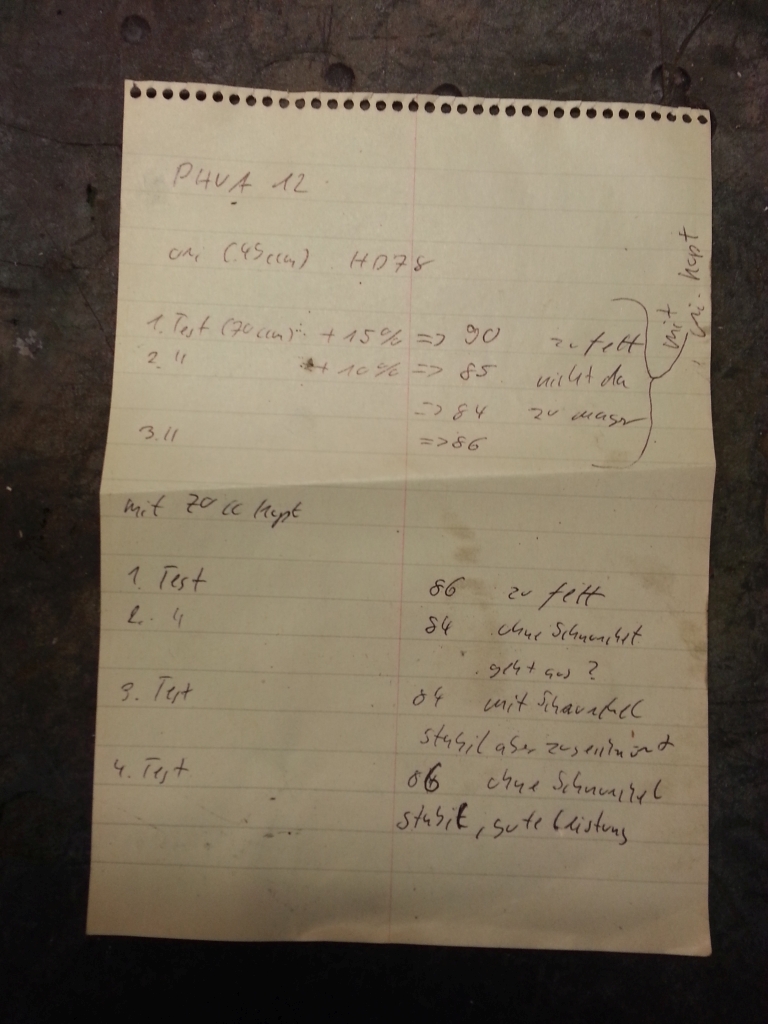 PHVA 12
ori (.49ccm) HD78
1. Test (70ccm) +15% => 90 zu fett
2. " + 10% => 85 nicht da
=> 84 zu mager
3. " => 86
mit ori. kopt
mit 70 cc kopt
1. Test 86 zu fett
2. " 84 ohne Schnorchel
geht aus ?
3. Test 84 mit Schnorchel
stabil aber zugeschnürt
4. Test 86 ohne Schnorchel
stabil, gute Leistung